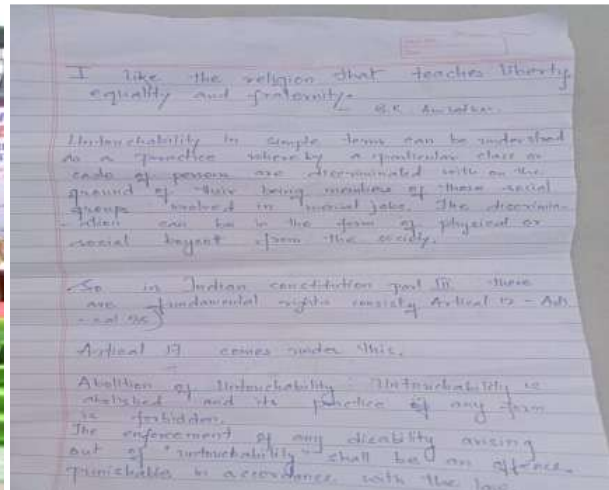 I like the religion that teaches liberty
equality and fraternity.
B.R. Ambedkar.
Untouchability in simple term can be understood
as a practice whereby a particular class or
caste of persons are discriminated with on the
ground of their being members of those social
groups involved in menial jobs. The discrimin-
-ation can be in the form of physical or
social boycott from the society.
So in Indian constitution part III there
are fundamental rights consisty Artical 12 - Arti
-cal 35)
Artical 17 comes under this.
Abolition of Untouchability : Untouchability is
abolished and its practice of any form
is forbidden.
The enforcement of any disability arising
out of "untouchability" shall be an offence
punishable in accordance with the law